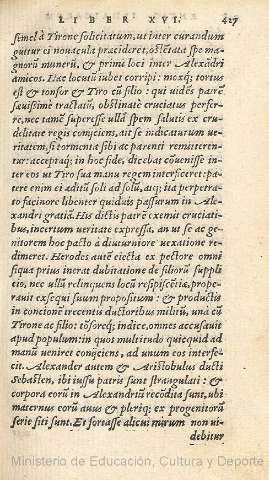 LIBER XVI. 427
simel à Tirone solicitatum, ut inter curandum
guttur ei nouacula præcideret, ostētata spe ma-
gnorū munerū, & primi loci inter Alexādri
amicos. Hac locutū iubet corripi: moxq; tortus
est & tonsor & Tiro cū filio: qui uidēs patrē
sæuissimè tractatū, obstinatè cruciatus perfer-
re, nec tamē superesse ullā spem salutis ex cru-
delitate regis conijciens, ait se indicaturum ue-
ritatem, si tormenta sibi ac parenti remitteren-
tur: acceptaq; in hoc fide, dicebat cōuenisse in-
ter eos ut Tiro sua manu regem interficeret: pa-
tere enim ei aditū soli ad solū, atq; ita perpetra-
to facinore libenter quiduis passurum in Ale-
xandri gratiā. His dictis patrē exemit cruciati-
bus, incertum ueritate expressa, an ut se ac ge-
nitorem hoc pacto à diuturniore uexatione re-
dimeret. Herodes autē eiecta ex pectore omni
siqua prius inerat dubitatione de filiorū suppli
cio, nec ullū relinquens locū resipiscētiæ, prope-
rauit exsequi suum propositum: & productis
in concionē trecentis ductoribus militū, unà cū
Tirone ac filio: tōsoreq; indice, omnes accusauit
apud populum: in quos multitudo quicquid ad
manū ueniret conijciens, ad unum eos interfe-
cit. Alexander autem & Aristobulus ducti
Sebasten, ibi iussu patris sunt strangulati: &
corpora eorū in Alexandriū recōdita sunt, ubi
maternus eorū auus & pleriq; ex progenitorū
serie siti sunt. Et fortasse alicui mirum non ui-
debitur
Ministerio de Educación, Cultura y Deporte